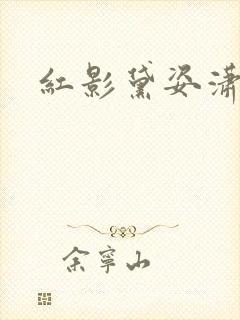 紅影黛姿瀟
余寧山